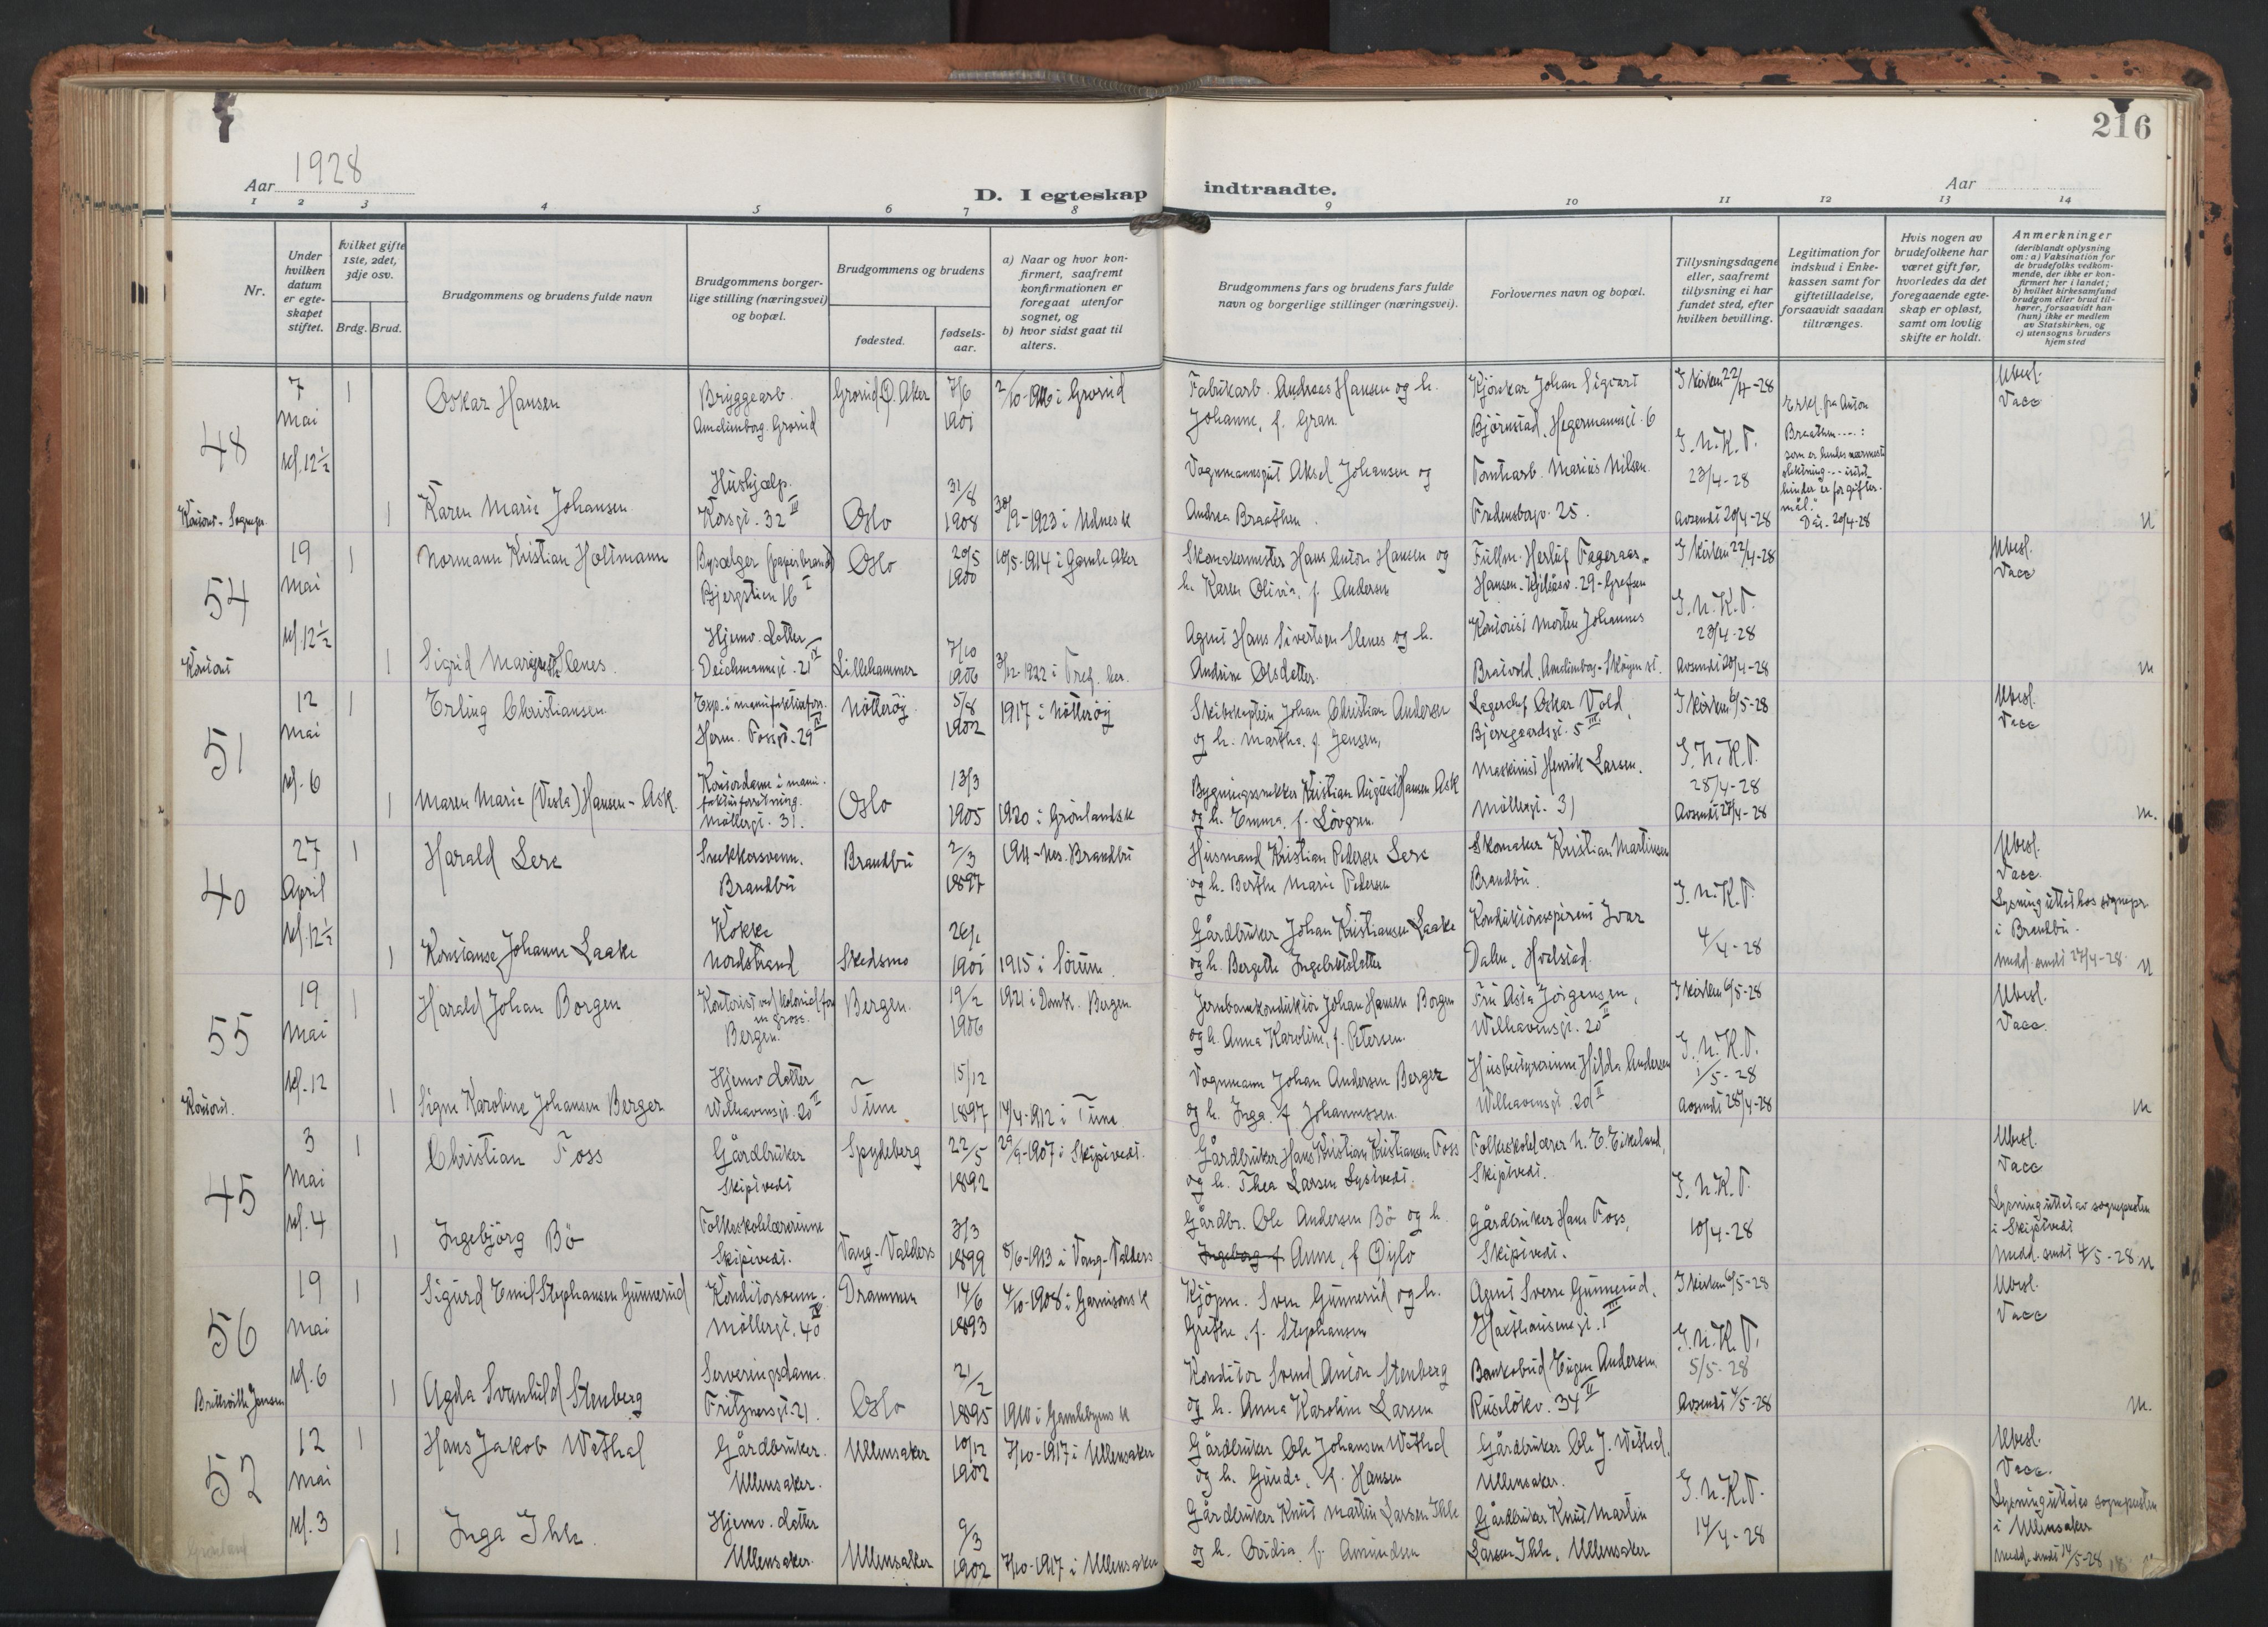 216
Aar 1928
D. I egteskap indtraadte.
Aar
1 2 3 4 5 6 7 8 9 10 11 12 13 14
Nr.
Under hvilken datum er egteskapet stiftet.
hvilket gifte 1ste, 2det, 3dje osv.
Brdg. Brud.
Brudgommens og brudens fulde navn
Brudgommens borgerlige stilling (næringsvei) og bopæl.
Brudgommens og brudens
fødested.
fødselsaar.
a) Naar og hvor konfirmert, saafremt konfirmationen er foregaat utenfor sognet, og
b) hvor sidst gaat til alters.
Brudgommens fars og brudens fars fulde navn og borgerlige stillinger (næringsvei).
Forlovernes navn og bopæl.
Tillysningsdagene eller, saafremt tillysning ei har fundet sted, efter hvilken bevilling.
Legitimation for indskud i Enkekassen samt for giftetilladelse, forsaavidt saadan tiltrænges.
Hvis nogen av brudefolkene har været gift før, hvorledes da det foregaaende egteskap er opløst, samt om lovlig skifte er holdt.
Anmerkninger
(deriblandt oplysning om: a) Vaksination for de brudefolks vedkommende, der ikke er konfirmert her i landet;
b) hvilket kirkesamfund brudgom eller brud tilhører, forsaavidt han (hun) ikke er medlem av Statskirken, og
c) utensogns bruders hjemsted
48
7 Mai kl. 12½
1
Oskar Hansen
Bryggearb.
Amalienborg. Grorud
Grorud, Ø. Aker
7/6 1901
2/10-1916 i Grorud
Fabrikarb. Andreas Hansen og h.
Johanne, f. Gran
Kjørekar Johan Sigvart
Bjørnstad, Hegermannsgt. 6
I kirken 22/4-28
Ubesl.
Vacc
1
Karen Marie Johansen
Hushjælp.
Korsgt. 32 III
Oslo
31/8 1908
30/9-1923 i Uranienb. k
Vognmannsgut Aksel Johansen og
Andrea Braathen.
Tomtearb. Marius Nilsen.
Fredensborgv. 25.
I.n.K.T.
23/4-28
Avsendt 20/4-28
Erkl. fra Anton
Braathen ---- :
som er hendes nærmeste
slektning ---
hinder er for giftermål."
Dat. 20/4-28
54
19 Mai kl. 12½
1
Normann Kristian Holtmann
Bysælger (papirbranch)
Bjergstien 16 I
Oslo
20/5 1900
10/5-1914 i Gamle Aker
Skomakermester Hans Anton Hansen og
h. Karen Olivia, f. Andersen
Fullm. Herluf Fageraas-
Hansen. Kjelsåsv. 29-Grefsen
I kirken 22/4-28
Ubesl.
Vacc
Kontoret
1
Sigrid Margrethe Slenes.
Hjemv. datter
Deichmannsgt. 21 IV
Lillehammer
7/10 1906
3/12-1922 i Tref. ker.
Agent Hans Sivertsen Slenes og h.
Andrine Olsdatter.
Kontorist Morten Johannes
Bratvold, Amalienborg-Skøyen st.
I.n.K.T.
23/4-28
Avsendt 20/4-28
51
12 Mai kl. 6
1
Erling Christiansen
Exp. i manufakturforr.
Herm. Fossgt. 29 IV
Nøtterøy
5/8 1902
1917 i Nøtterøy
Skibskaptein Johan Christian Andersen
og h. Martha, f. Jensen,
Lagerchef Oskar Vold,
Bjerregaardsgt. 5 III
I kirken 6/5-28
Ubesl.
Vacc
1
Maren Marie (Vesla) Hansen-Ask.
Kontordame i manufakturforretning.
Møllergt. 31.
Oslo
13/3 1905
1920 i Grønlandsk
Bygningssnekker Kristian August Hansen Ask
og h. Emma, f. Løvgren.
Maskinist Henrik Larsen.
Møllergt. 31
I.n.K.T.
28/4-28
Avsendt 27/4-28
40
27 April kl. 12½
1
Harald Lere
Snekkersvenn.
Brandbu
Brandbu
2/3 1897
1911-Nes. Brandbu
Husmand Kristian Pedersen Lere
og h. Berthe Marie Pedersen
Skomaker Kristian Martinsen
Brandbu.
Ubesl.
Vacc.
1
Konstanse Johanne Laake
Kokke
Nordstrand
Skedsmo
26/1 1901
1915 i Sørum
Gårdbruker Johan Kristiansen Laake
og h. Bergette Ingebretsdatter
Konduktøraspirant Ivar
Dalen, Hvalstad.
I.n.K.T.
4/4-28
Lysning uttat hos sognepr.
i Brandbu.
medd. sendt 27/4-28.
55
19 Mai kl. 12
1
Harald Johan Borgen
Kontorist ved kolonialforr.
en gross.
Bergen.
Bergen.
19/2 1906
1921 i Domk. Bergen
Jernbanekonduktør Johan Hansen Borgen
og h. Anna Karoline, f. Petersen.
Fru Asta Jørgensen,
Welhavensgt. 20 II
I kirken 6/5-28
Ubesl.
Vacc.
Kontoret.
1
Signe Karoline Johansen Berger
Hjemv datter
Welhavensgt. 20 II
Tune
15/12 1897
14/4-1912 i Tune
Vognmann Johan Andersen Berger
og h. Inga, f. Johannessen.
Husbestyrerinne Hilda Andersen
Welhavensgt. 20 II
I.n.K.T.
1/5-28
Avsendt 28/4-28
45
3 Mai kl. 4
1
Christian Foss
Gårdbruker
Skiptvedt
Spydeberg
22/5 1892
29/9-1907 i Skiptvedt.
Gårdbruker Hans Kristian Kristiansen Foss
og h. Thea Larsen Lystvedt.
Folkeskolelærer N. E. Eikeland,
Skiptvedt.
Ubesl.
Vacc
1
Ingebjørg Bø
Folkeskolelærerinne
Skiptvedt.
Vang-Valdres
3/3 1899
8/6-1913 i Vang-Valdres
Gårdbr. Ole Andersen Bø og h.
Ingeborg f. Anne, f Øylo
Gårdbruker Hans Foss,
Skiptvedt.
I.n.K.T.
10/4-28
Lysning uttat av sognepresten
i Skiptvedt
Medd. sendt 4/5-28
56
19 Mai kl. 6
1
Sigurd Emil Stephansen Gunnerud
Konditorsvenn.
Møllergt. 40 IV
Drammen
14/6 1893
4/10-1908 i Garnisons k
Kjøpm. Sven Gunnerud og h.
Grethe, f. Stephansen
Agent Sverre Gunnerud.
Haxthausensgt. 1 III
I kirken 6/5-28
Ubesl.
Vacc
1
Agda Svanhild Stenberg
Serveringsdame.
Fritznersgt. 21.
Oslo
21/2 1895
1910 i Gamlebyens k
Konditor Svend Anton Stenberg
og h. Anna Karoline Larsen
Bankobud Eugen Andersen.
Ruseløkv. 34 II
I.n.K.T.
5/5-28
Avsendt 4/5-28
52
12 Mai kl. 3
1
Hans Jakob Wethal
Gårdbruker.
Ullensaker.
Ullensaker
10/12 1902
7/10-1917 i Ullensaker
Gårdbruker Ole Johansen Wethal
og h. Gunda, f. Hansen
Gårdbruker Ole J. Wethal,
Ullensaker.
Ubesl.
Vacc.
Grønland
1
Inga Ihle.
Hjemv. datter
Ullensaker.
Ullensaker
9/3 1902
7/10-1917 i Ullensaker
Gårdbruker Knut Martin Larsen Ihle
og h. Ovidia, f. Amundsen
Gårdbruker Knut Martin
Larsen Ihle, Ullensaker
I.n.K.T.
14/4-28
Lysning uttat av sognepresten
i Ullensaker
Medd. sendt 14/5-28